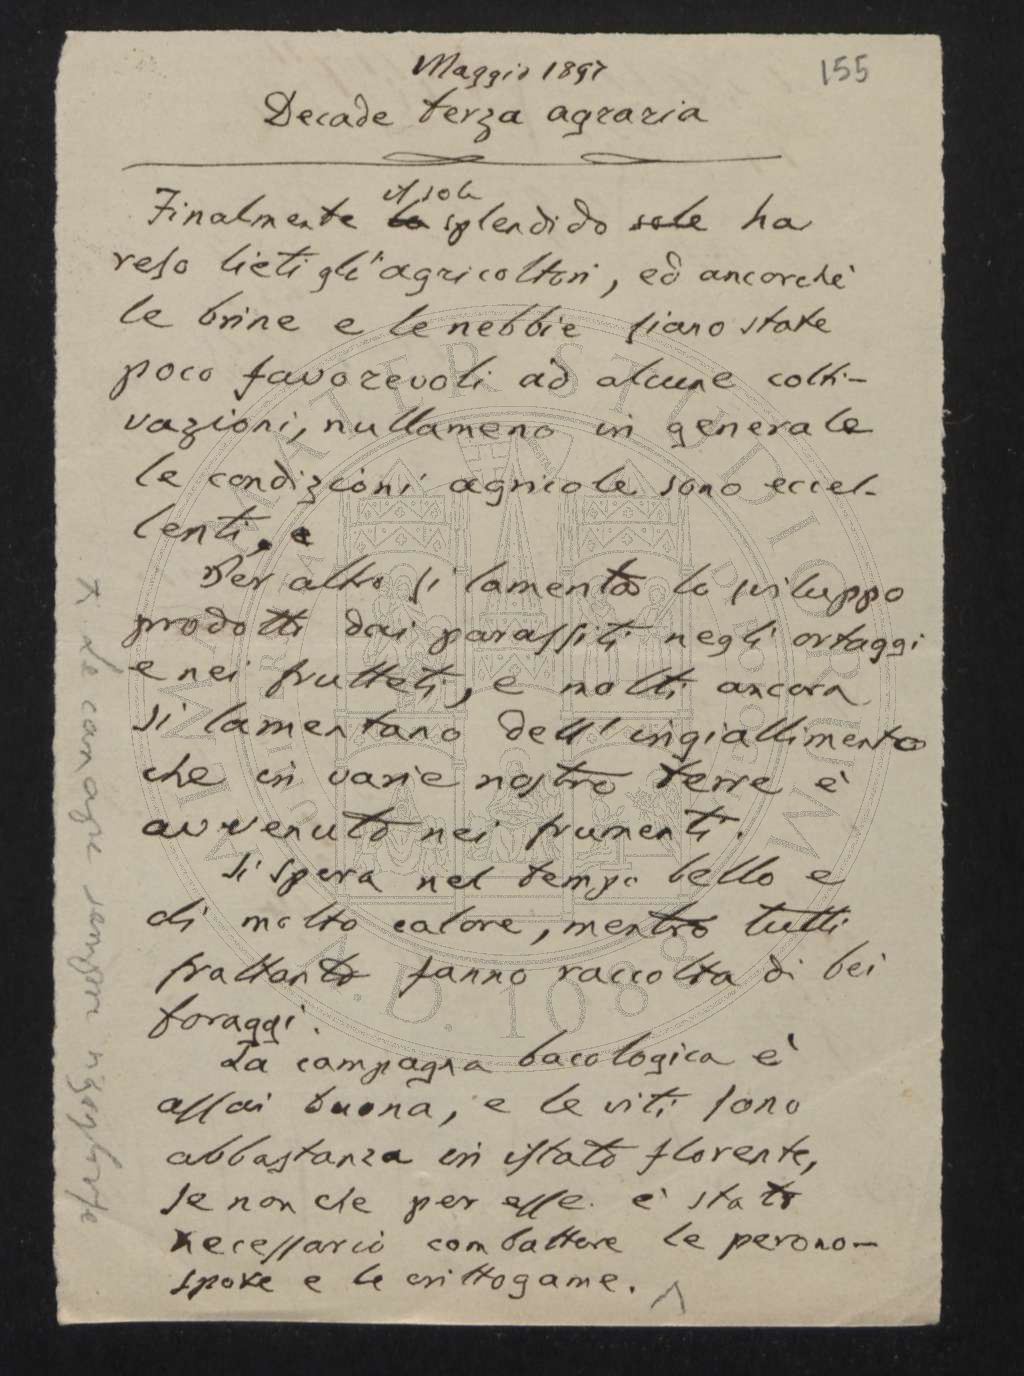 155
Maggio 1897
Decade terza agraria
il sole
Finalmente lo splendido sole ha
reso lieti gli agricoltori, ed ancorchè
le brine e le nebbie siano state
poco favorevoli ad alcune colti-
vazioni, nullameno in generale
le condizioni agricole sono eccel-
lenti. e
Per altro si lamenta lo sviluppo
prodotti dai parassiti negli ortaggi
e nei frutteti, e molti ancora
si lamentano dell'ingiallimento
che in varie nostre terre è
avvenuto nei frumenti.
Si spera nel tempo bello e
di molto calore, mentre tutti
frattanto fanno raccolta di bei
foraggi.
La campagna bacologica è
assai buona, e le viti sono
abbastanza in istato florente,
se non che per esse è stato
necessario combattere le perono-
spore e le crittogame.
Le campagne sempre
ALMA MATER STUDIORUM
A.D. 1088